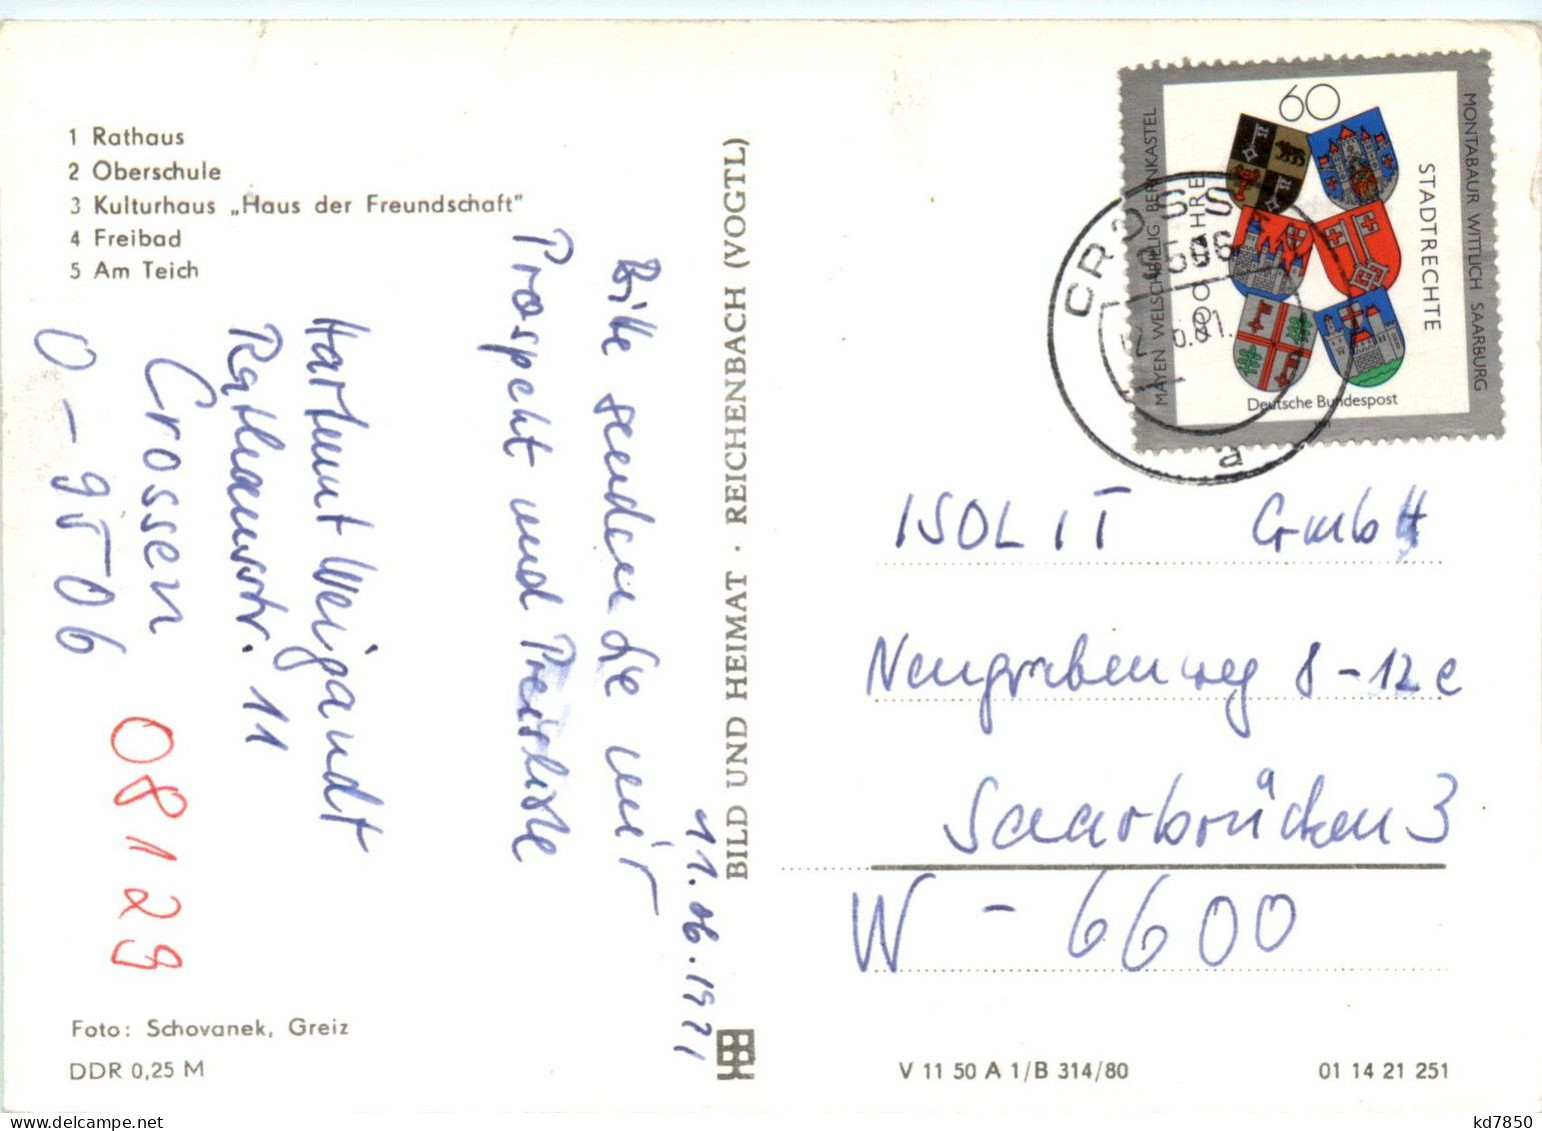 1 Rathaus
2 Oberschule
3 Kulturhaus „Haus der Freundschaft"
4 Freibad
5 Am Teich
11.06.1991
Bitte senden Sie mir
Prospekt und Preisliste
Hartmut Weigandt
Rathausstr. 11
Crossen
O - 9506
08129
Foto: Schovanek, Greiz
DDR 0,25 M
BILD UND HEIMAT · REICHENBACH (VOGTL)
60
MAYEN WELSCHBILLIG BERNKASTEL
MONTABAUR WITTLICH SAARBURG
JAHRE
STADTRECHTE
Deutsche Bundespost
CROSS
a
ISOLIT GmbH
Neugrabenweg 8-12c
Saarbrücken 3
W - 6600
V 11 50 A 1/B 314/80
01 14 21 251
kd7850